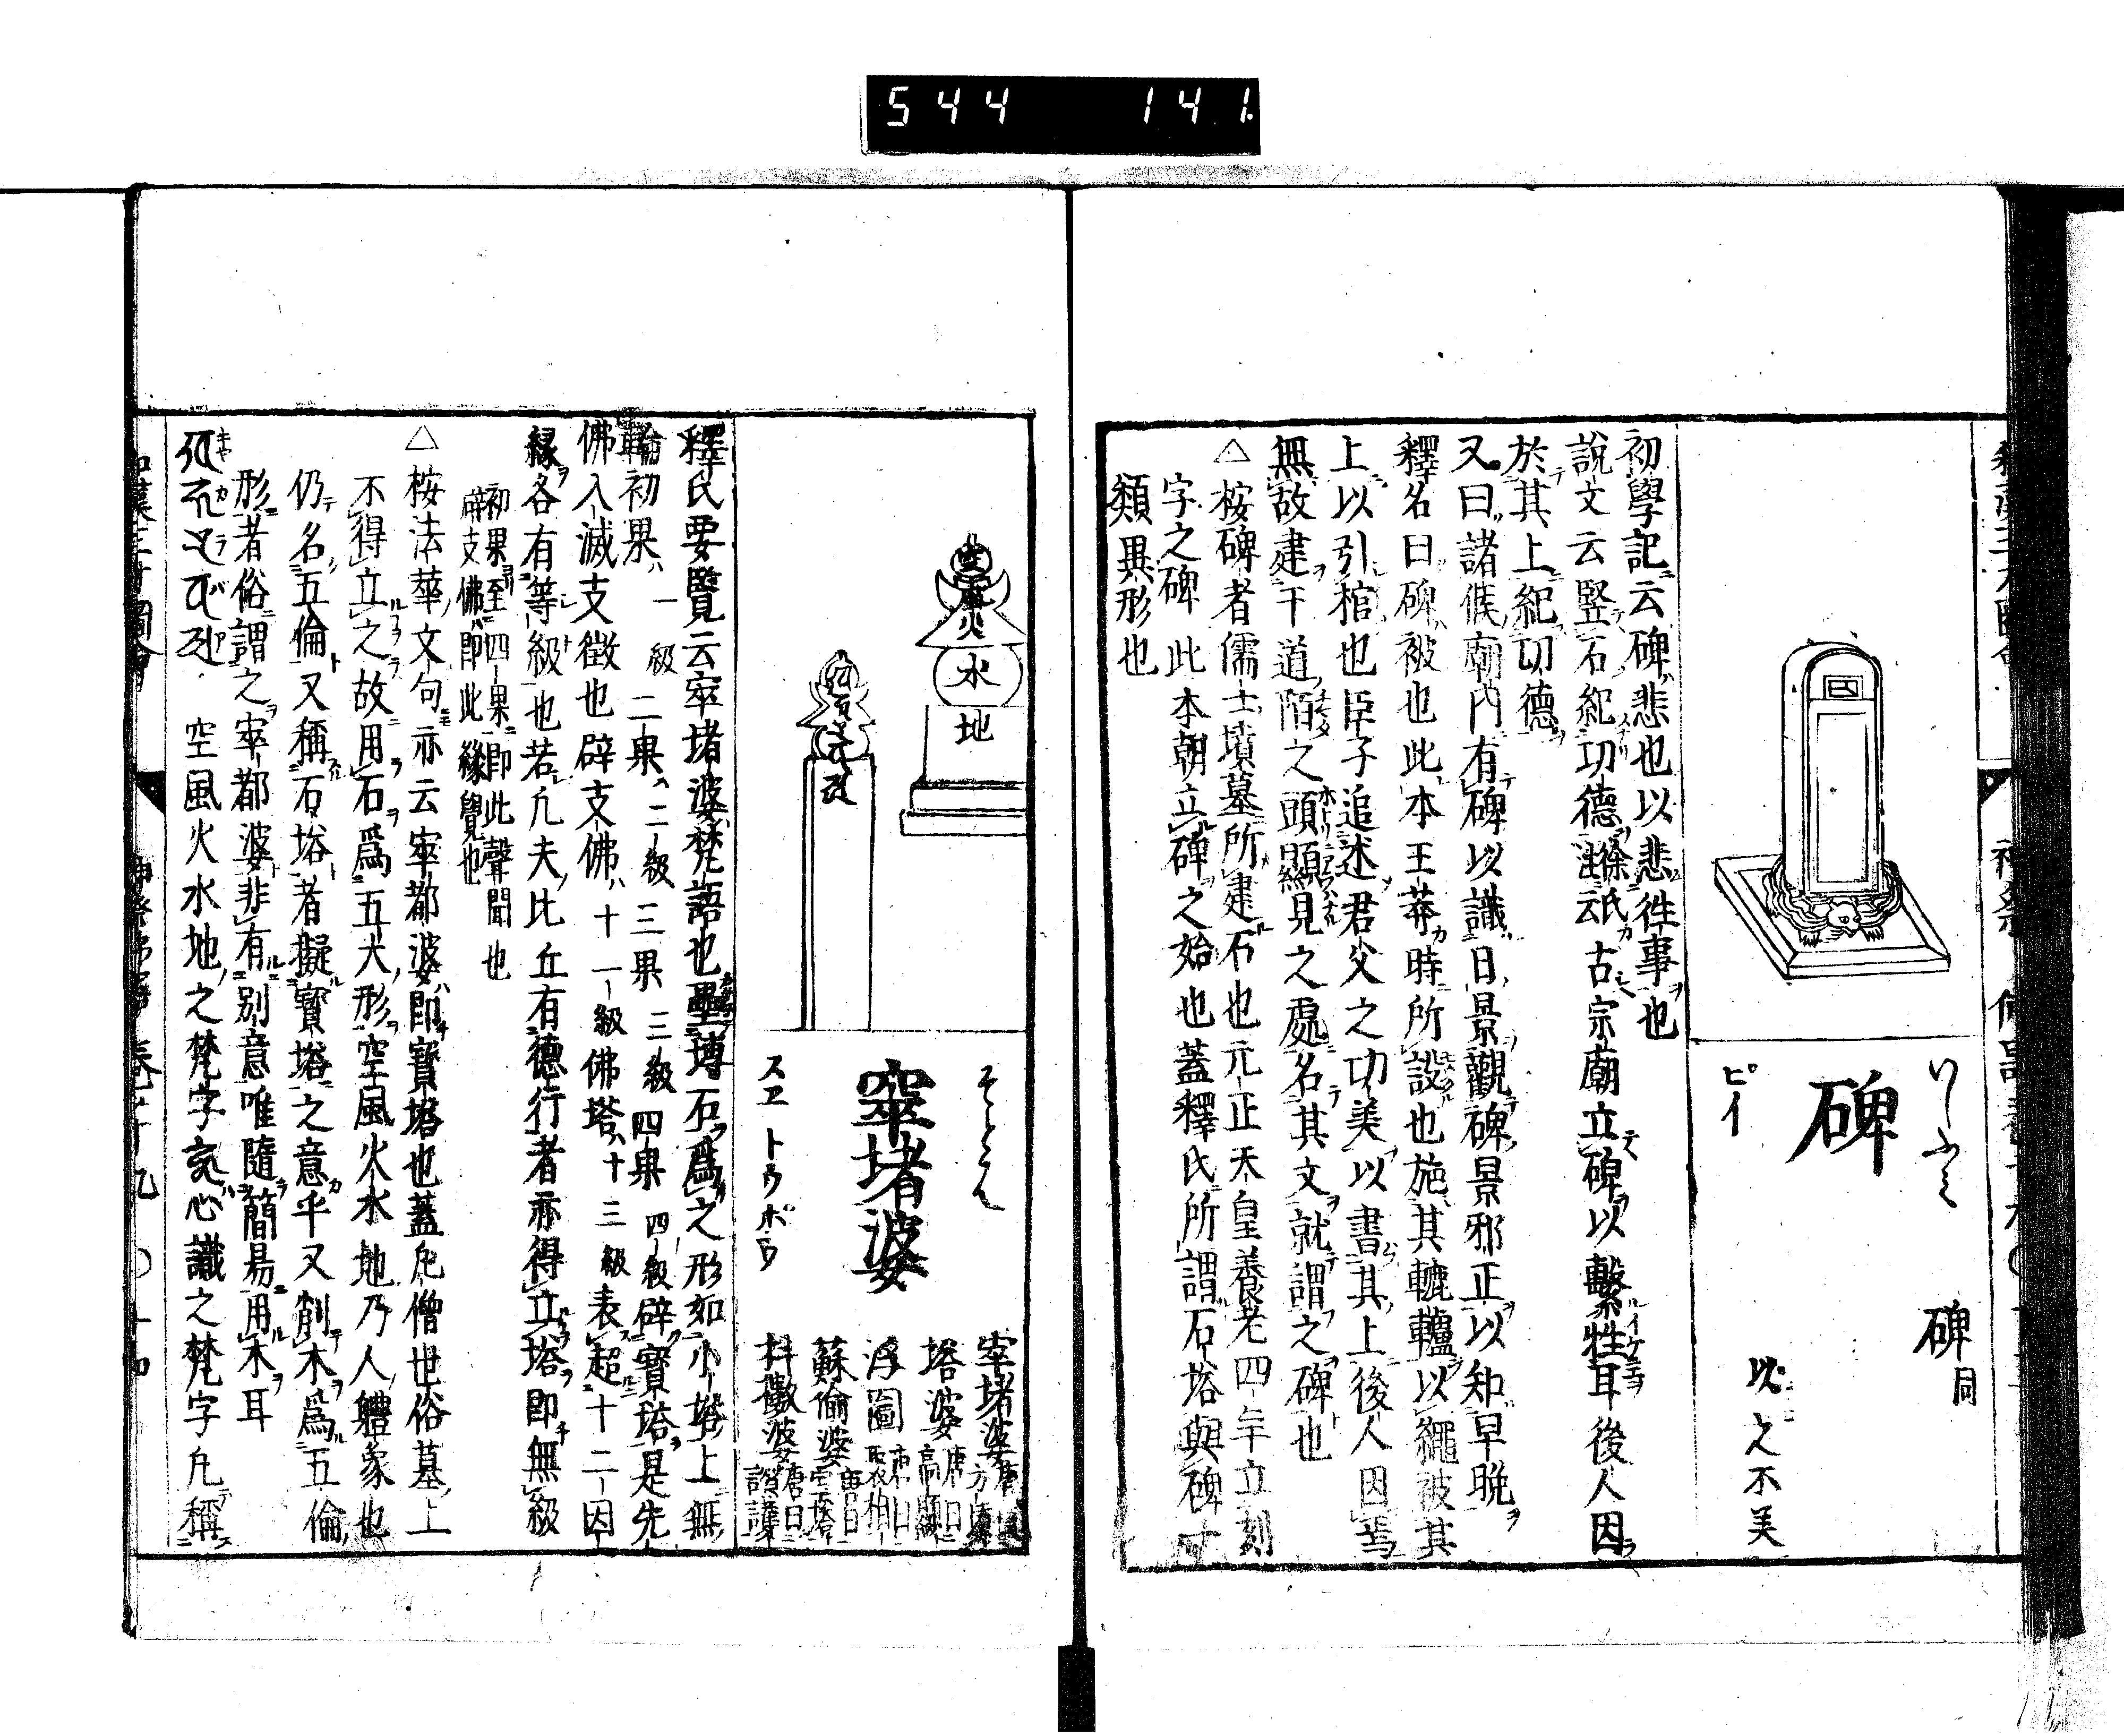 544 141
碑
ピイ
碑同
以之不美
初學記云碑悲也以悲徃事也
說文云竪石紀功德徐氏註云古宗廟立碑以繫牲耳後人因
於其上紀功德
又曰諸侯廟內有碑以識日景觀碑景邪正以知早晩
釋名曰碑被也此本王莽時所設也施其轆轤以繩被其
上以引棺也臣子追述君父之功美以書其上後人因焉
無故建于道陌之頭顯見之處名其文就謂之碑也
△桉碑者儒士墳墓所建石也元正天皇養老四年立刻
字之碑此本朝立碑之始也蓋釋氏所謂石塔與碑
類異形也
空風火水地
窣堵婆
スヱトウポウ
窣堵婆
塔婆
浮圖
蘇偷婆
抖擻婆
釋氏要覽云窣堵婆梵語也壘塼石爲之形如小塔上無
輪初果一級二果二級三果三級四果四級辟寶塔是先
佛入滅支徵也辟支佛十一級佛塔十三級表超十二因
緣各有等級也若凢夫比丘有德行者亦得立塔即無級
初果至四果即此聲聞也
辟支佛即此緣覺也
△桉法華文句亦云窣都婆即寶塔也蓋凢僧世俗墓上
不得立之故用石爲五大形空風火水地乃人軆象也
仍名五倫又稱石塔者擬寶塔之意乎又削木爲五倫
形者俗謂之窣都婆非有別意唯隨簡易用木耳
空風火水地之梵字 心識之梵字凢稱